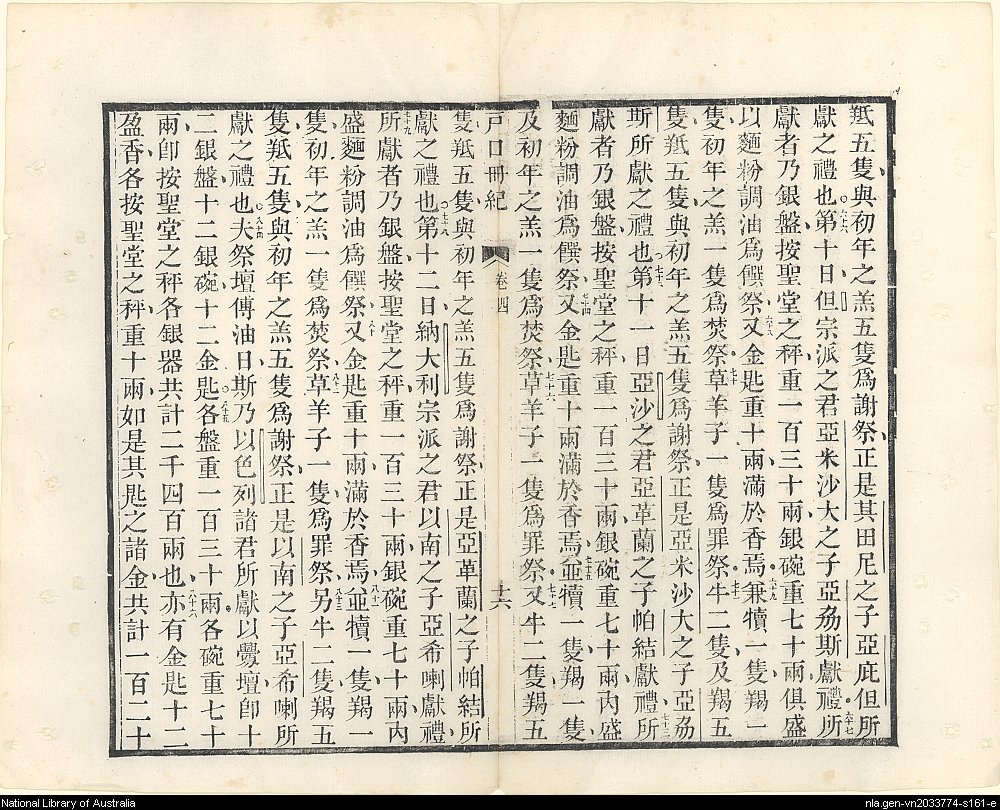 羝五隻與初年之羔五隻爲謝祭正是其田尼之子亞庇但所
獻之禮也六十六第十日但宗派之君亞米沙大之子亞刕斯獻禮所六十七
獻者乃銀盤按聖堂之秤重一百三十兩銀碗重七十兩俱盛
以麵粉調油爲饌祭六十八又金匙重十兩滿於香焉六十九兼犢一隻羯一
隻初年之羔一隻爲焚祭七十草羊子一隻爲罪祭七十一牛二隻及羯五
隻羝五隻與初年之羔五隻爲謝祭正是亞米沙大之子亞刕七十二
斯所獻之禮也七十二第十一日亞沙之君亞革蘭之子帕結獻禮所七十三
獻者乃銀盤按聖堂之秤重一百三十兩銀碗重七十兩內盛
麵粉調油爲饌祭七十四又金匙重十兩滿於香焉七十五並犢一隻羯一隻
及初年之羔一隻爲焚祭七十六草羊子一隻爲罪祭七十七又牛二隻羯五
戶口冊紀 卷四 十六
隻羝五隻與初年之羔五隻爲謝祭正是亞革蘭之子帕結所
獻之禮也七十八第十二日納大利宗派之君以南之子亞希喇獻禮
七十九所獻者乃銀盤按聖堂之秤重一百三十兩銀碗重七十兩內
盛麵粉調油爲饌祭八十又金匙重十兩滿於香焉八十一並犢一隻羯一
隻初年之羔一隻爲焚祭八十二草羊子一隻爲罪祭八十三另牛二隻羯五
隻羝五隻與初年之羔五隻爲謝祭正是以南之子亞希喇所
獻之禮也八十四夫祭壇傅油日斯乃以色列諸君所獻以釁壇卽十
二銀盤十二銀碗十二金匙八十五各盤重一百三十兩各碗重七十
兩卽按聖堂之秤各銀器共計二千四百兩也八十六亦有金匙十二
盈香各按聖堂之秤重十兩如是其匙之諸金共計一百二十
National Library of Australia
nla.gen-vn2033774-s161-e